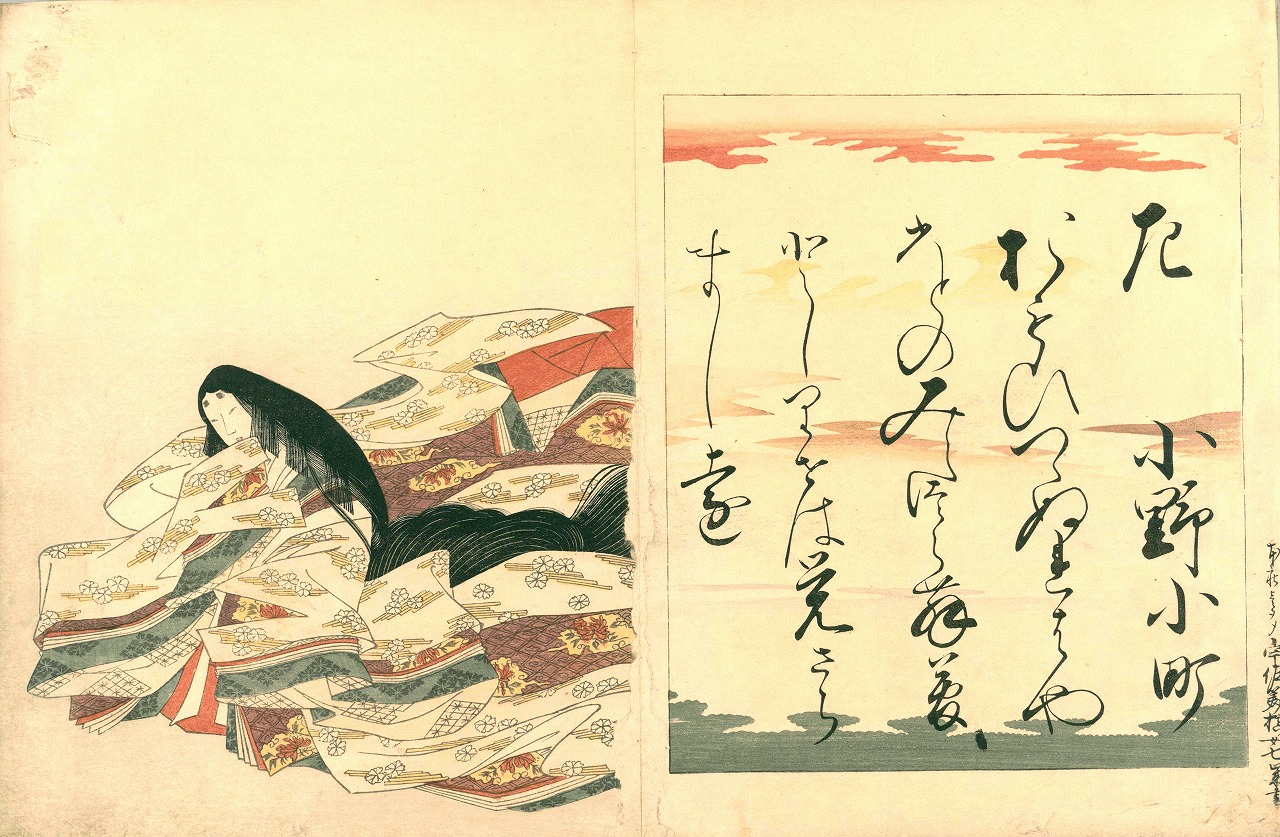 左　小野小町
おもひつゝぬれはや
ひとのみえつらむ夢
としりせは覚さら
ましを